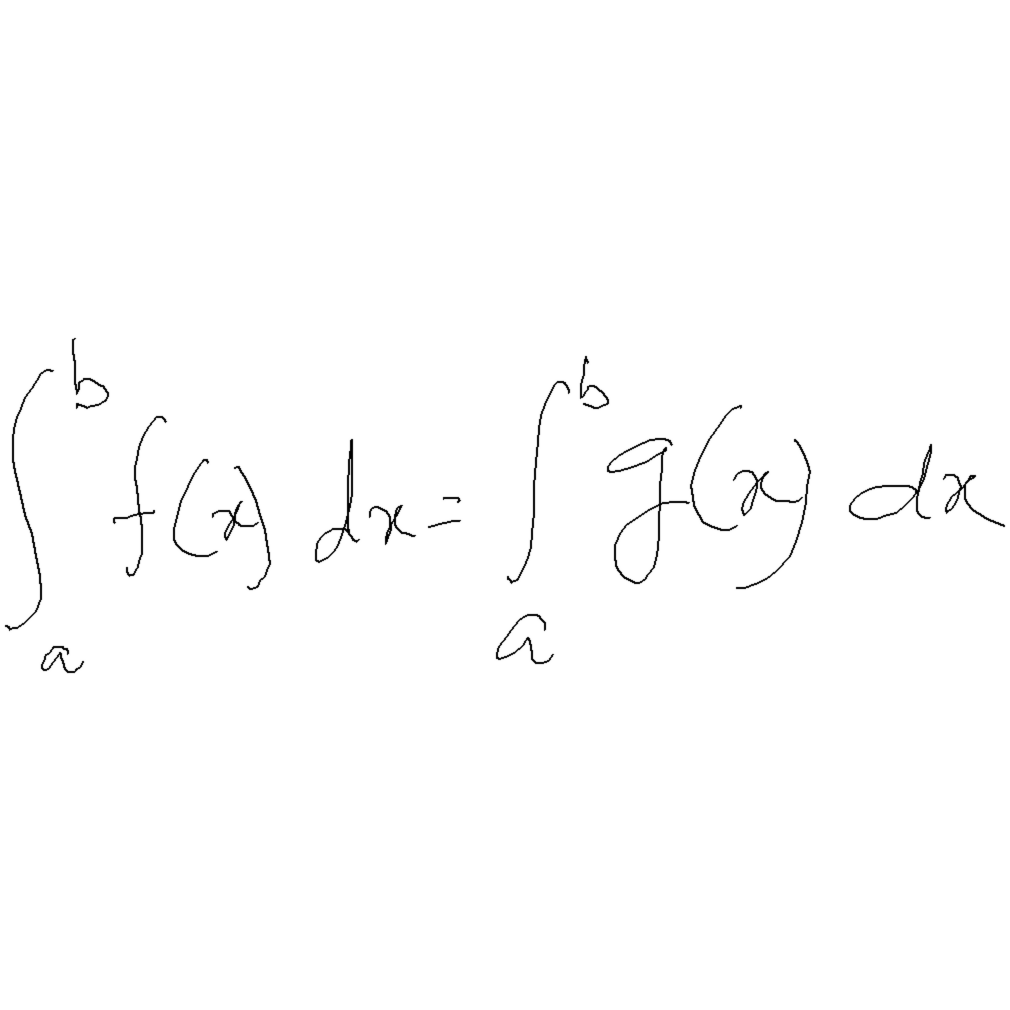 \int_{a}^{b} f(x) dx = \int_{a}^{b} g(x) dx